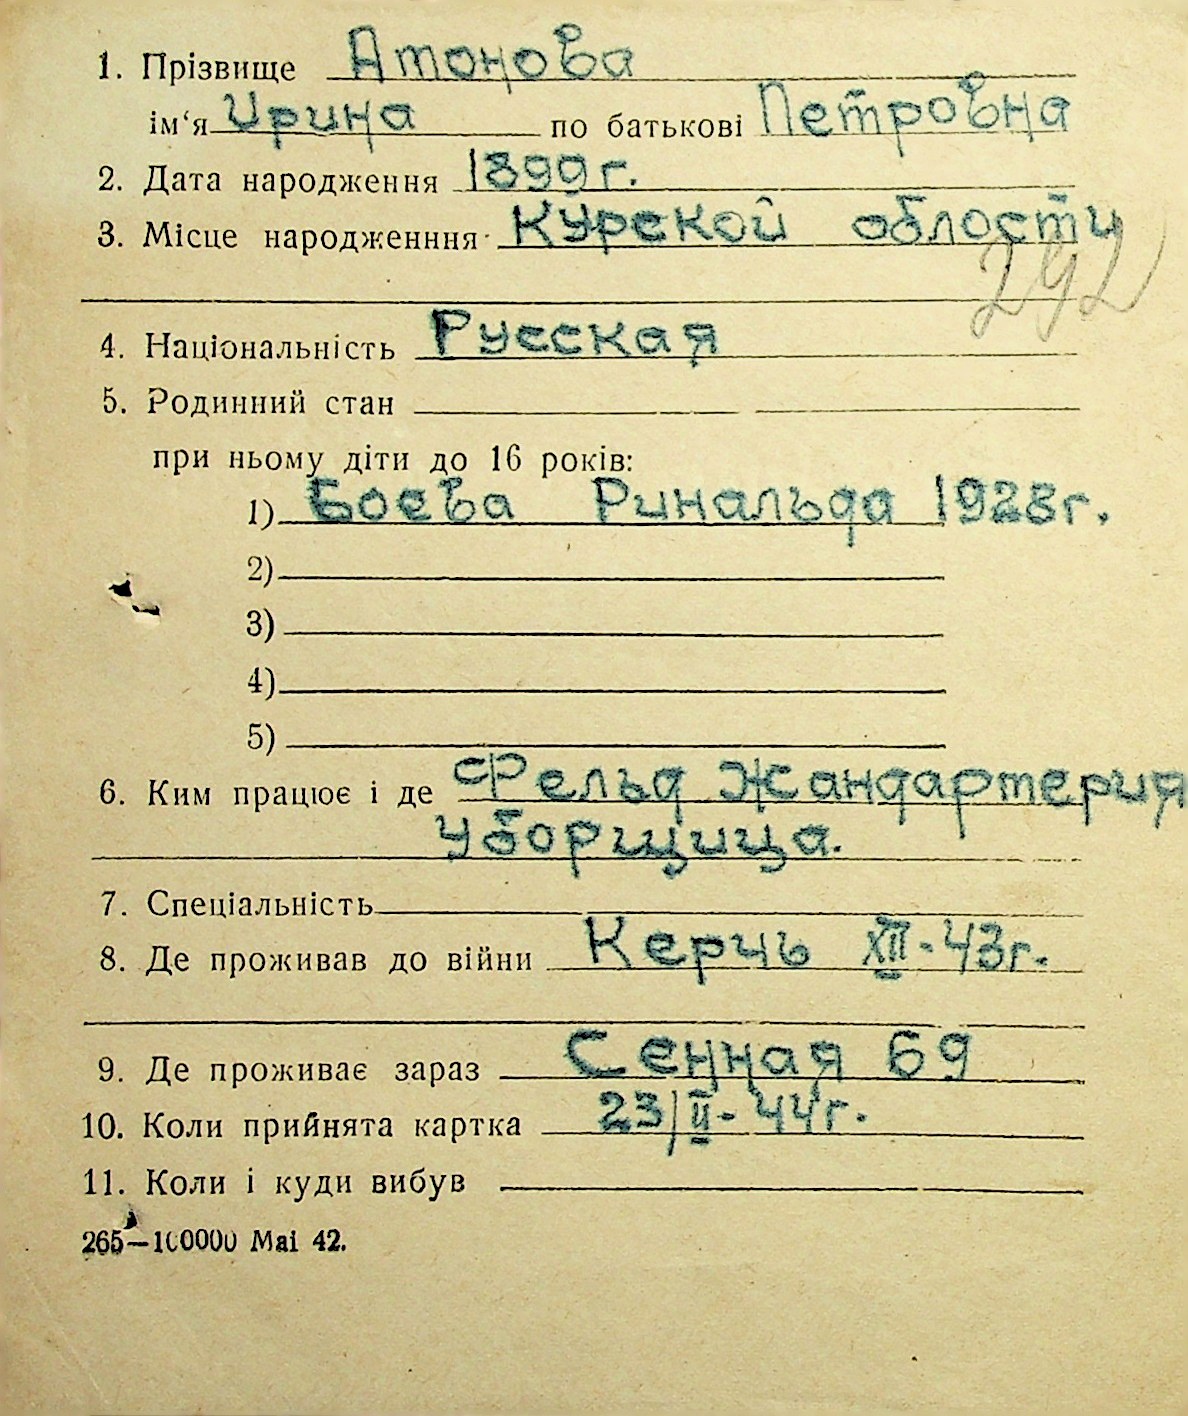 1. Прізвище Атонова
ім‘я Ирина по батькові Петровна
2. Дата народження 1899 г.
3. Місце народженння Курской облости
292
4. Національність Русская
5. Родинний стан
при ньому діти до 16 років:
1) Боева Ринальда 1928 г.
2)
3)
4)
5)
6. Ким працює і де Фельд Жандартерия
уборщица.
7. Спеціальність
8. Де проживав до війни Керчь XII-43 г.
9. Де проживає зараз Сенная 69
10. Коли прийнята картка 23/II-44 г.
11. Коли і куди вибув
265—100000 Mai 42.